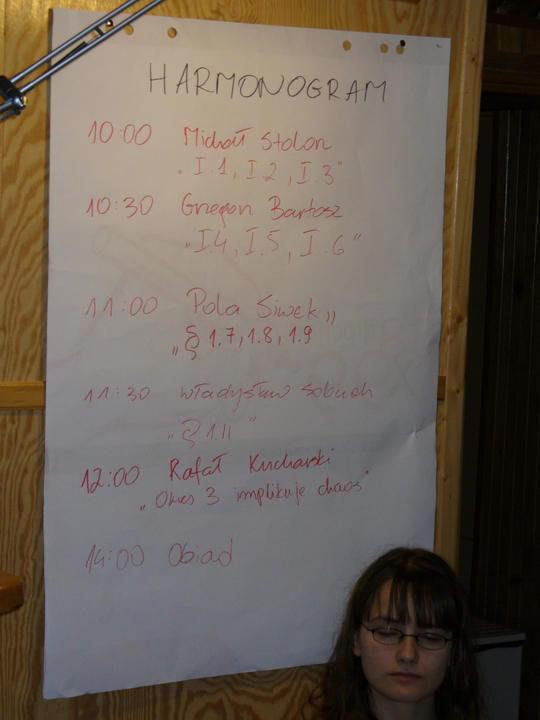 HARMONOGRAM
10:00 Michał Stolon
„I.1, I.2, I.3"
10:30 Grzegorz Bartosz
„I.4, I.5, I.6"
11:00 Pola Siwek
„§ 1.7, 1.8, 1.9"
11:30 Władysław
„§ 1.11"
12:00 Rafał Kucharski
„Okres 3 implikuje chaos"
14:00 Obiad